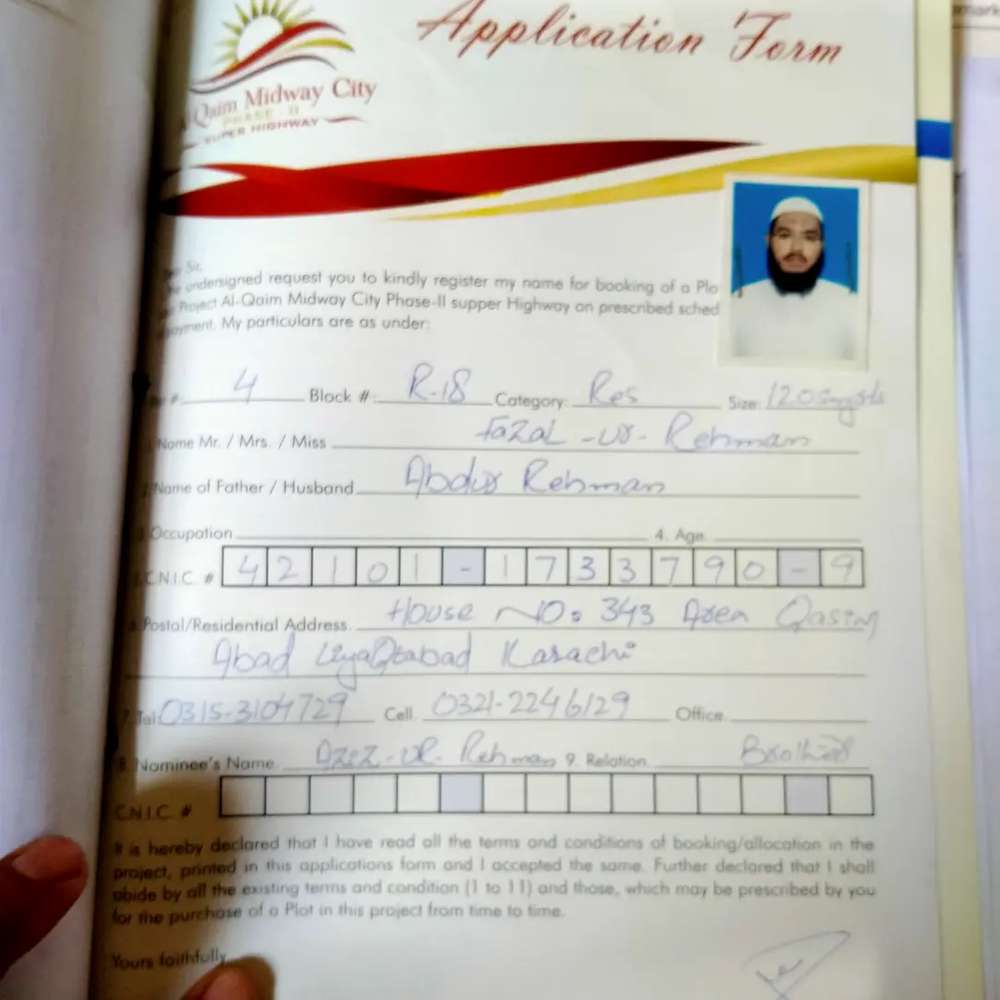 Application Form
Qaim Midway City
PHASE - II
SUPER HIGHWAY
Sir,
undersigned request you to kindly register my name for booking of a Plo
Project Al-Qaim Midway City Phase-II supper Highway on prescribed sched
payment. My particulars are as under:
#. 4 Block #. R-18 Category: Res Size: 120 Sqyds
1. Name Mr. / Mrs. / Miss Fazal -ur- Rehman
2. Name of Father / Husband Abdur Rehman
3. Occupation 4. Age
C.N.I.C. # 42101-1733790-9
Postal/Residential Address House No. 343 Area Qasim
Abad LiyaQtabad Karachi
7. Tel 0315-3104729 Cell. 0321-2246129 Office.
8. Nominee's Name Azez-ur-Rehman 9. Relation. Brother
C.N.I.C. #
It is hereby declared that I have read all the terms and conditions of booking/allocation in the
project, printed in this applications form and I accepted the same. Further declared that I shall
abide by all the existing terms and condition (1 to 11) and those, which may be prescribed by you
for the purchase of a Plot in this project from time to time.
Yours faithfully